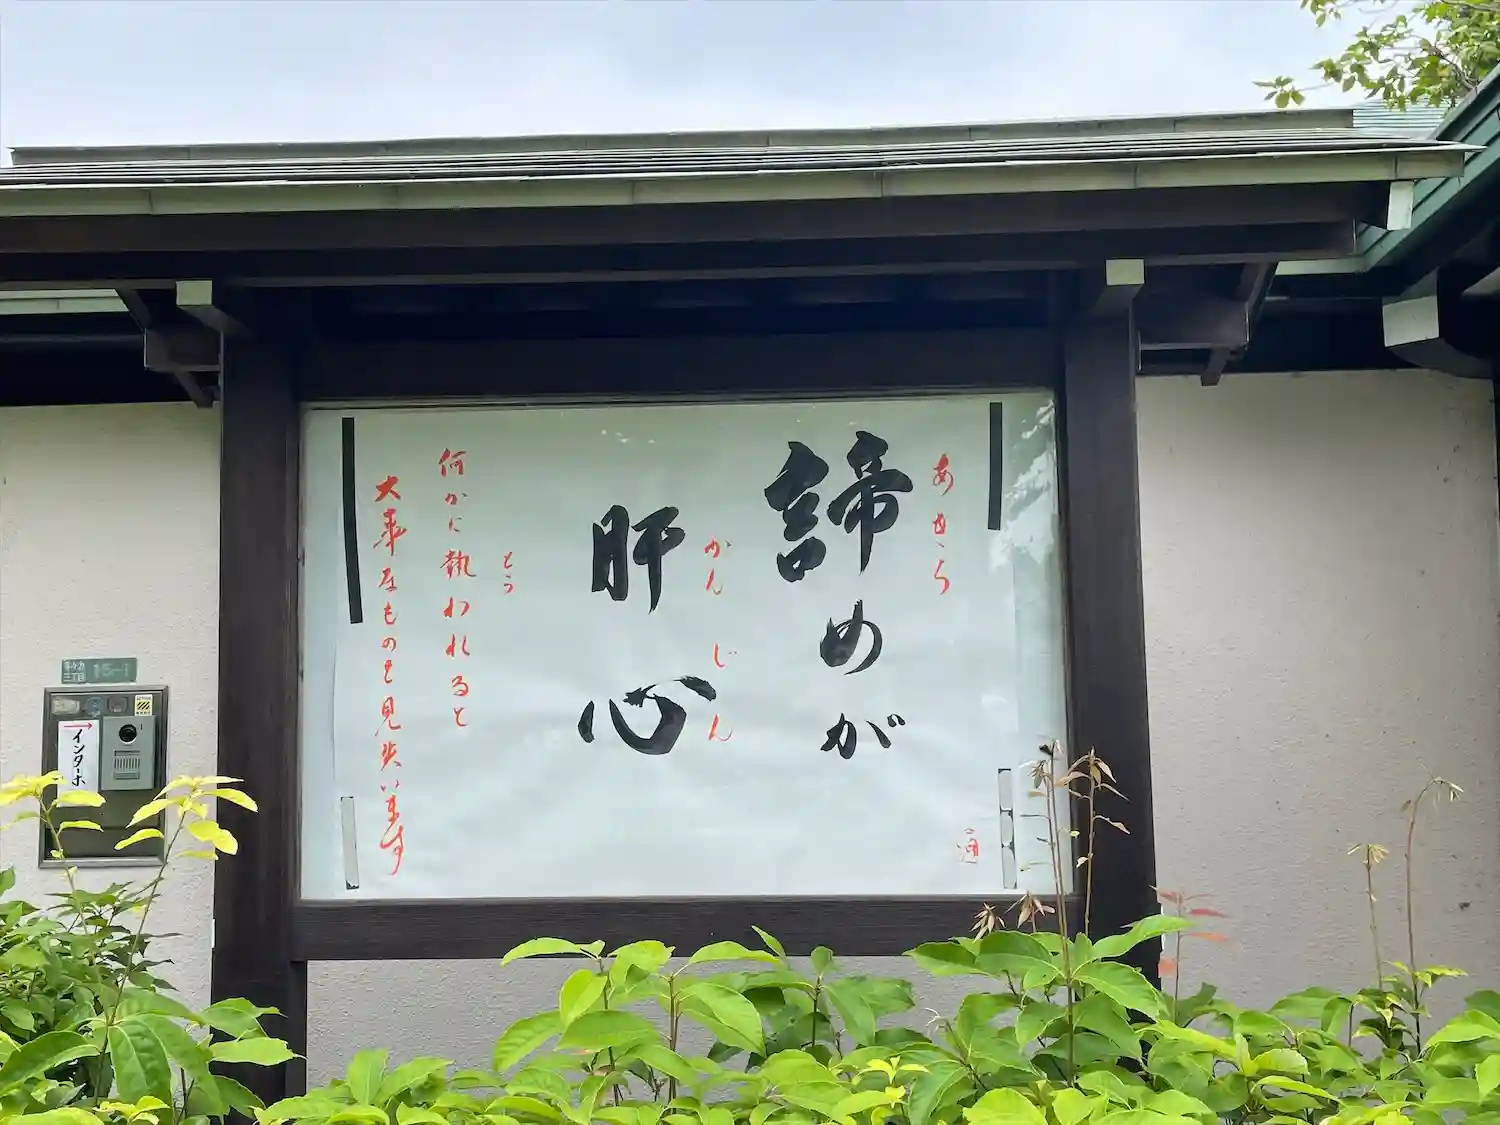 あきら
諦めが
かんじん
肝心
とら
何かに執われると
大事なものを見失います
通
等々力
二丁目
15-1
インターホ